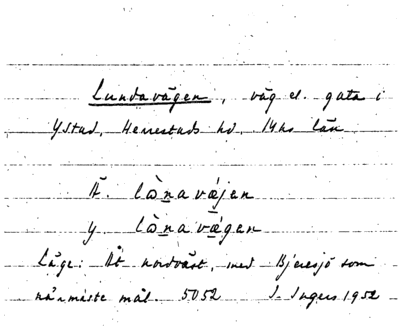 Lundavägen, väg el. gata i
Ystad, Herrestads hd, Mhs län
Ä. lònavæ̀jen
y lònavæ̀gen
Läge: Åt nordväst, med Bjeresjö som
närmaste mål. 5052 I. Ingers 1952